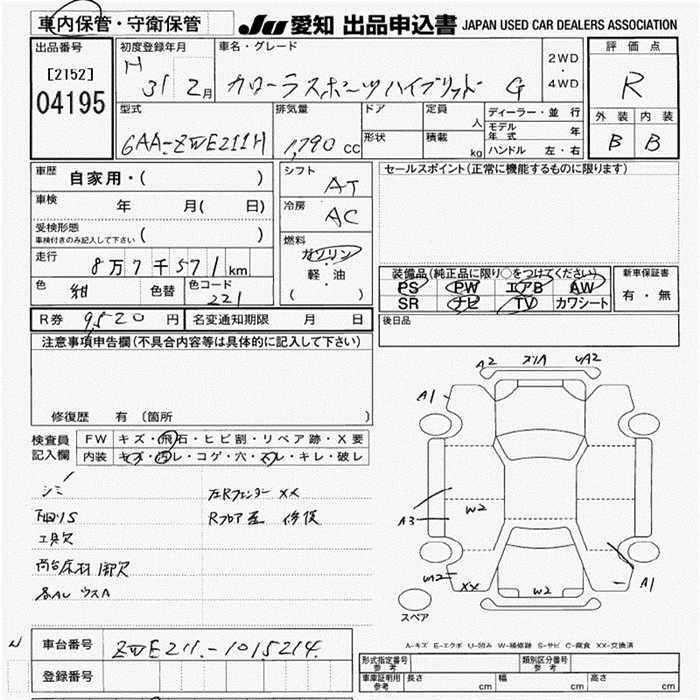 車内保管・守衛保管 JU 愛知 出品申込書 JAPAN USED CAR DEALERS ASSOCIATION
出品番号 初度登録年月 車名・グレード 評価点
[2152] H 31 2月 カローラスポーツハイブリッド G 2WD・4WD R
04195
型式 排気量 ドア 定員 人 ディーラー・並行 外装 内装
6AA-ZWE211H 1,790 cc 形状 積載 kg モデル年式 年 B B
ハンドル 左・右
車歴 自家用・( ) シフト AT セールスポイント(正常に機能するものに限ります)
車検 年 月( 日) 冷房 AC
受検形態 ( )
車検付きのみ記入して下さい
燃料 ガソリン
走行 8万7千571km 軽・油
( )
装備品(純正品に限り○をつけてください) 新車保証書
色 紺 色替 色コード 221
PS PW エアB AW 有・無
SR ナビ TV カワシート
R券 9,520円 名変通知期限 月 日 後日品
注意事項申告欄(不具合内容等は具体的に記入して下さい)
修復歴 有 〔箇所 〕
検査員記入欄 FW キズ・飛石・ヒビ割・リペア跡・X要
内装 キズ・汚レ・コゲ・穴・スレ・キレ・破レ
シミ 左Rフェンダー XX
下回りS Rフロア歪 修復
工具欠
A2 XX/A UA2
A1
W2
A3
W2
XX
W2
A1
スペア
A-キズ E-エクボ U-凹み W-補修跡 S-サビ C-腐食 XX-交換済
車台番号 ZWE211-1015214
登録番号
形式指定番号 参考 類別区分番号 参考
車庫証明用 参考 長さ cm 幅 cm 高さ cm